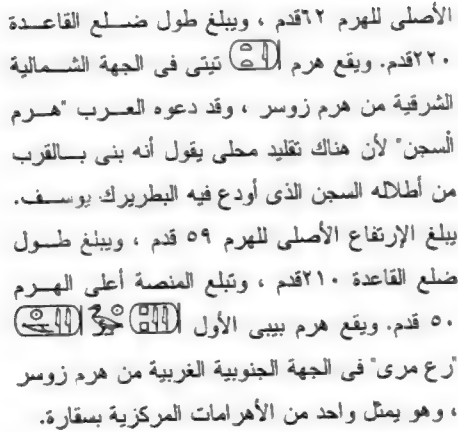 الأصلى للهرم ٦٢قدم ، ويبلغ طول ضلع القاعدة
٢٢٠قدم. ويقع هرم تيتى فى الجهة الشمالية
الشرقية من هرم زوسر ، وقد دعوه العرب "هرم
السجن" لأن هناك تقليد محلى يقول أنه بنى بالقرب
من أطلاله السجن الذى أودع فيه البطريرك يوسف.
يبلغ الإرتفاع الأصلى للهرم ٥٩ قدم ، ويبلغ طول
ضلع القاعدة ٢١٠قدم ، وتبلع المنصة أعلى الهرم
٥٠ قدم. ويقع هرم بيبى الأول
"رع مرى" فى الجهة الجنوبية الغربية من هرم زوسر
، وهو يمثل واحد من الأهرامات المركزية بسقارة.